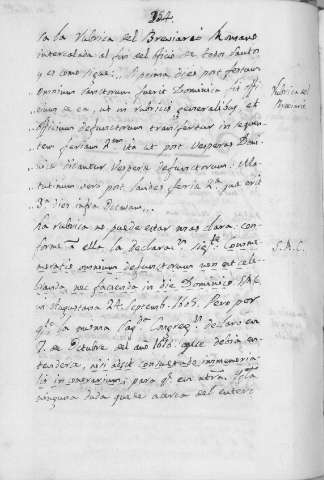 154.
ra la Rubrica del Breviario Romano
intercalada al fin del oficio de todos Santos
y es como sigue: Si prima dies post festum
Omnium Sanctorum fuerit Dominica fit offi
cium de ea, ut in rubricis generalibus, et
officium defunctorum transfertur in sequen
tem feriam 2.am ita ut post Vesperas Domi
nicæ dicantur Vesperæ defunctorum: Ma
tutinum vero post laudes feria 2.a quæ erit
3.a dies infra Octavam.
Rubrica del
Breviario
La rubrica no puede estar mas clara. con
forme a ella la declara.on sig.te Comme
moratio omnium defunctorum non est cele
branda, nec facienda in die Dominico. S.R.C.
in Augustana 24. Septemb. 1605. Pero por
q.e la misma Sag.da Congreg.n declaró en
7. de Octubre del año 1616. que debia en
tenderse, nisi adsit consuetudo immemoria
lis in contrarium; para q.e en ntra.
ninguna duda quede acerca del entierro
S.R.C.